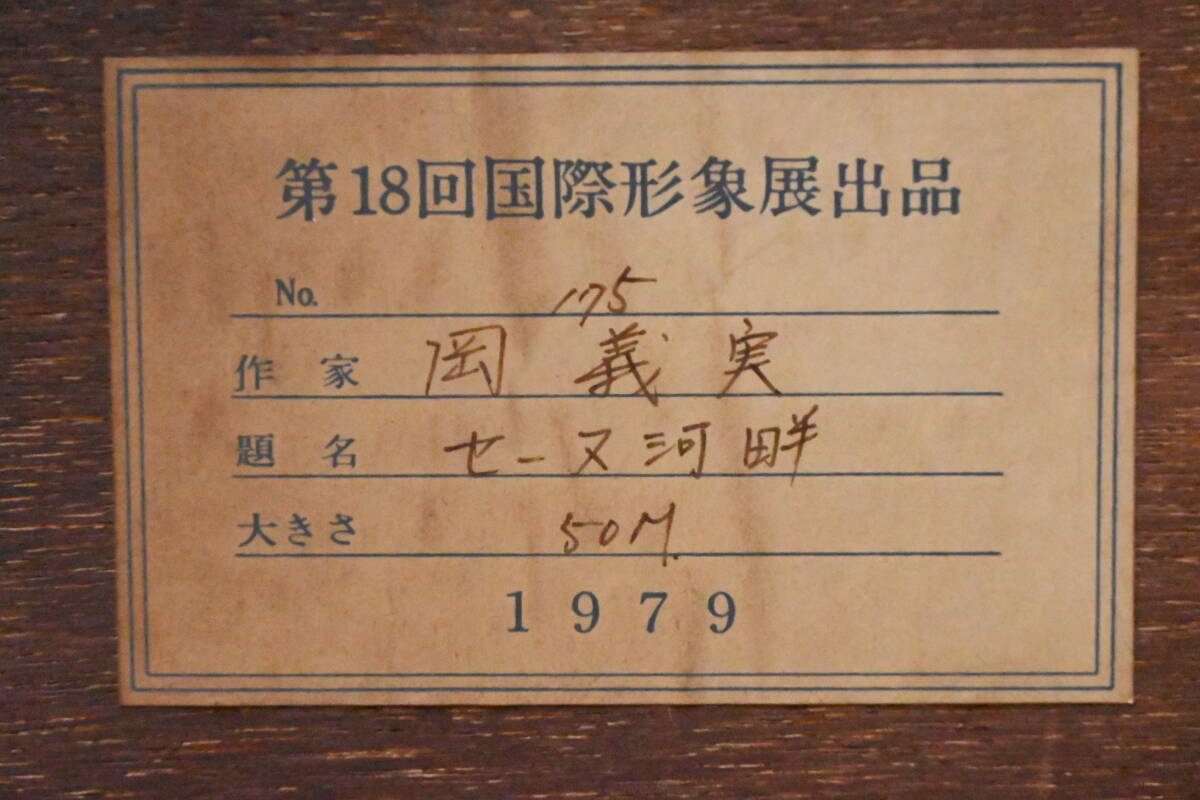 第18回国際形象展出品
No. 175
作家 岡 義実
題名 セーヌ河畔
大きさ 50M.
1979